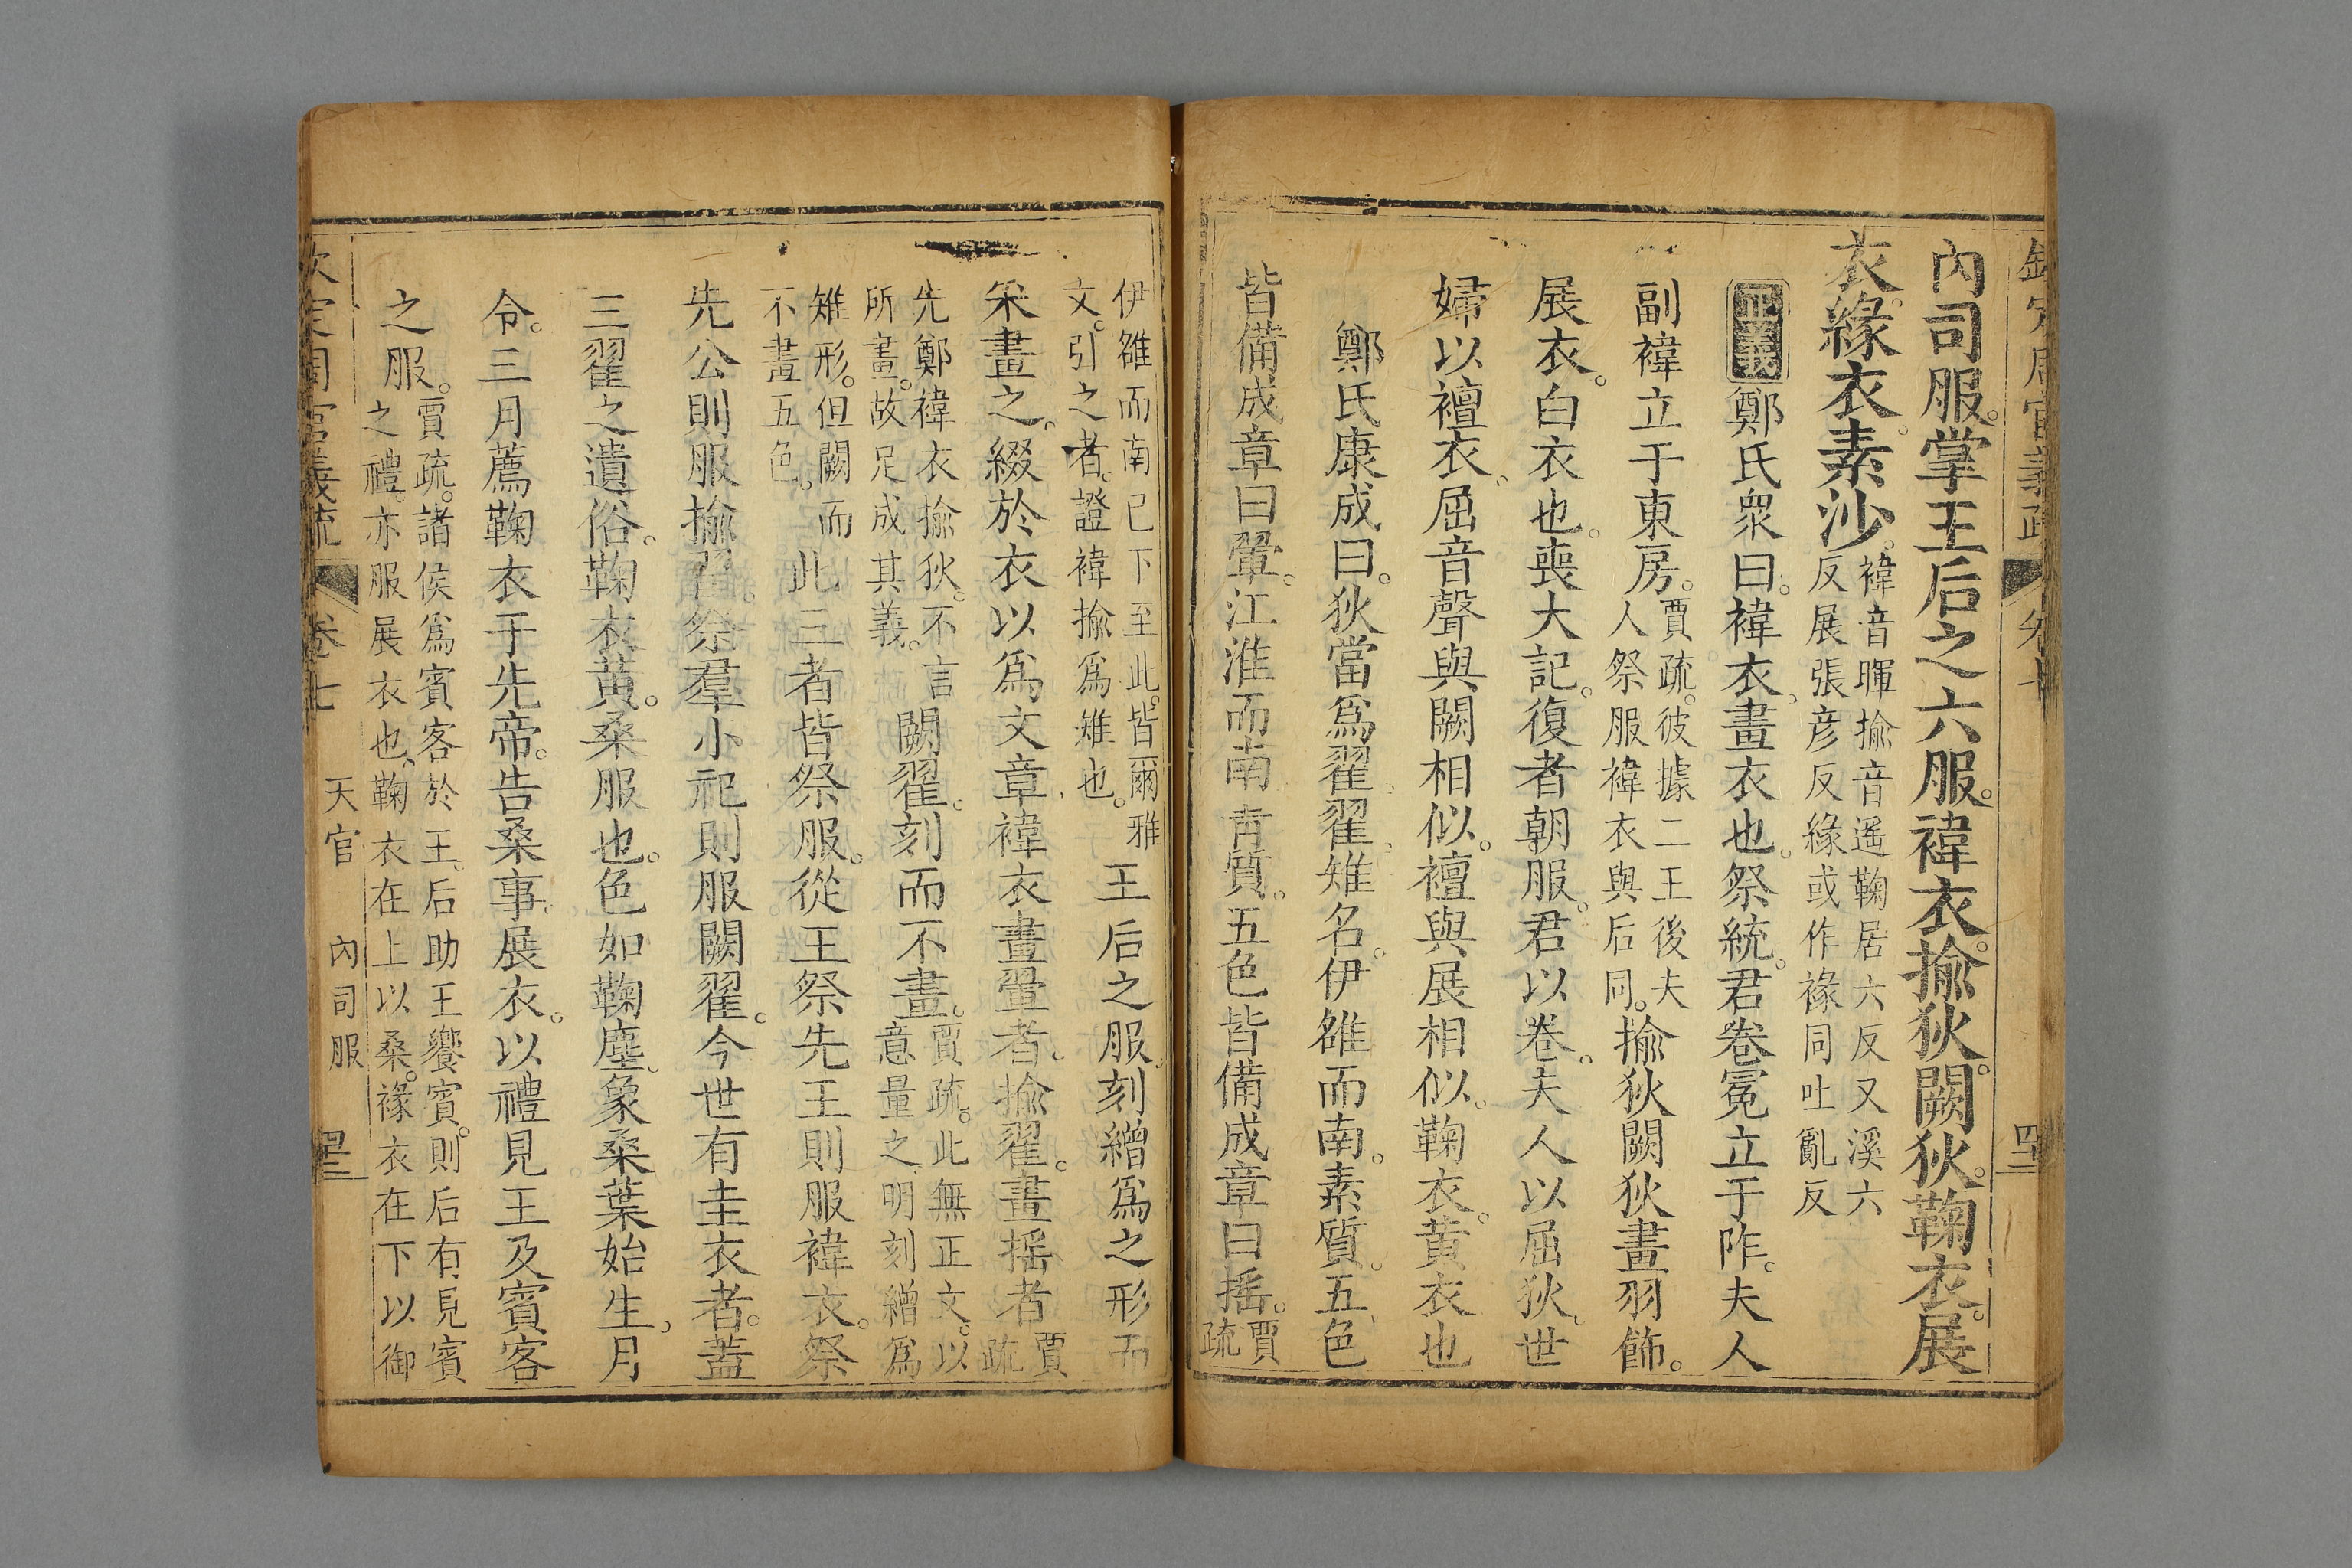 內司服。掌王后之六服。褘衣。揄狄。闕狄。鞠衣。展
衣。緣衣。素沙。褘音暉揄音遙鞠居六反又溪六
反展張彦反緣或作褖同吐亂反
正義鄭氏衆曰。褘衣、畫衣也。祭統。君卷冕立于阼。夫人
副褘立于東房。賈疏。彼據二王後夫
人祭服褘衣與后同。揄狄闕狄畫羽飾。
展衣。白衣也。喪大記。復者朝服。君以卷。夫人以屈狄、世
婦以襢衣、屈音聲與闕相似。襢與展相似。鞠衣。黃衣也
鄭氏康成曰。狄當爲翟、翟、雉名。伊雒而南。素質。五色
皆備成章曰翬。江淮而南靑質。五色皆備成章曰搖。賈
疏
伊雒而南已下至此。皆爾雅
文。引之者。證褘揄爲雉也。王后之服、刻繒爲之形而
采畫之、綴於衣以爲文章、褘衣畫翬者。揄翟。畫搖者賈
疏
先鄭褘衣揄狄。不言
所畫。故足成其義。闕翟。刻而不畫。賈疏。此無正文。以
意量之、明刻繒爲
雉形。但闕而
不畫五色。此三者皆祭服。從王祭先王則服褘衣。祭
先公則服揄翟。祭羣小祀則服闕翟。今世有圭衣者。蓋
三翟之遺俗。鞠衣黃。桑服也。色如鞠塵、象桑葉始生、月
令。三月薦鞠衣于先帝。告桑事。展衣。以禮見王及賓客
之服。賈疏。諸侯爲賓客於王。后助王饗賓。則后有見賓
之禮。亦服展衣也、鞠衣在上以桑。褖衣在下以御
欽定周官義疏 卷七 天官 內司服